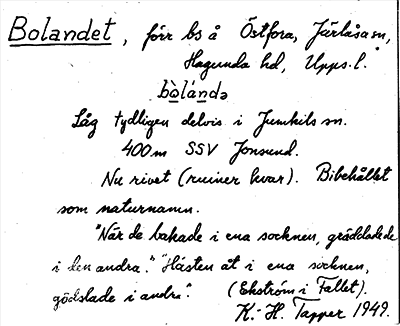 Bolandet, förr bs å Östfora, Järlåsa sn,
Hagunda hd, Upps. l.
bòlándə
Låg tydligen delvis i Jumkils sn.
400 m SSV Jonsund.
Nu rivet (ruiner kvar). Bibehållet
som naturnamn.
"När de bakade i ena socknen, gräddade de
i den andra." "Hästen åt i ena socknen,
gödslade i andra". (Ekström i Fallet).
K.-H. Tapper 1949.